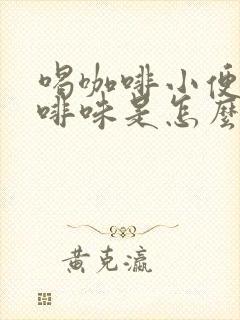 喝咖啡小便
啡味是怎麼
黄克瀛